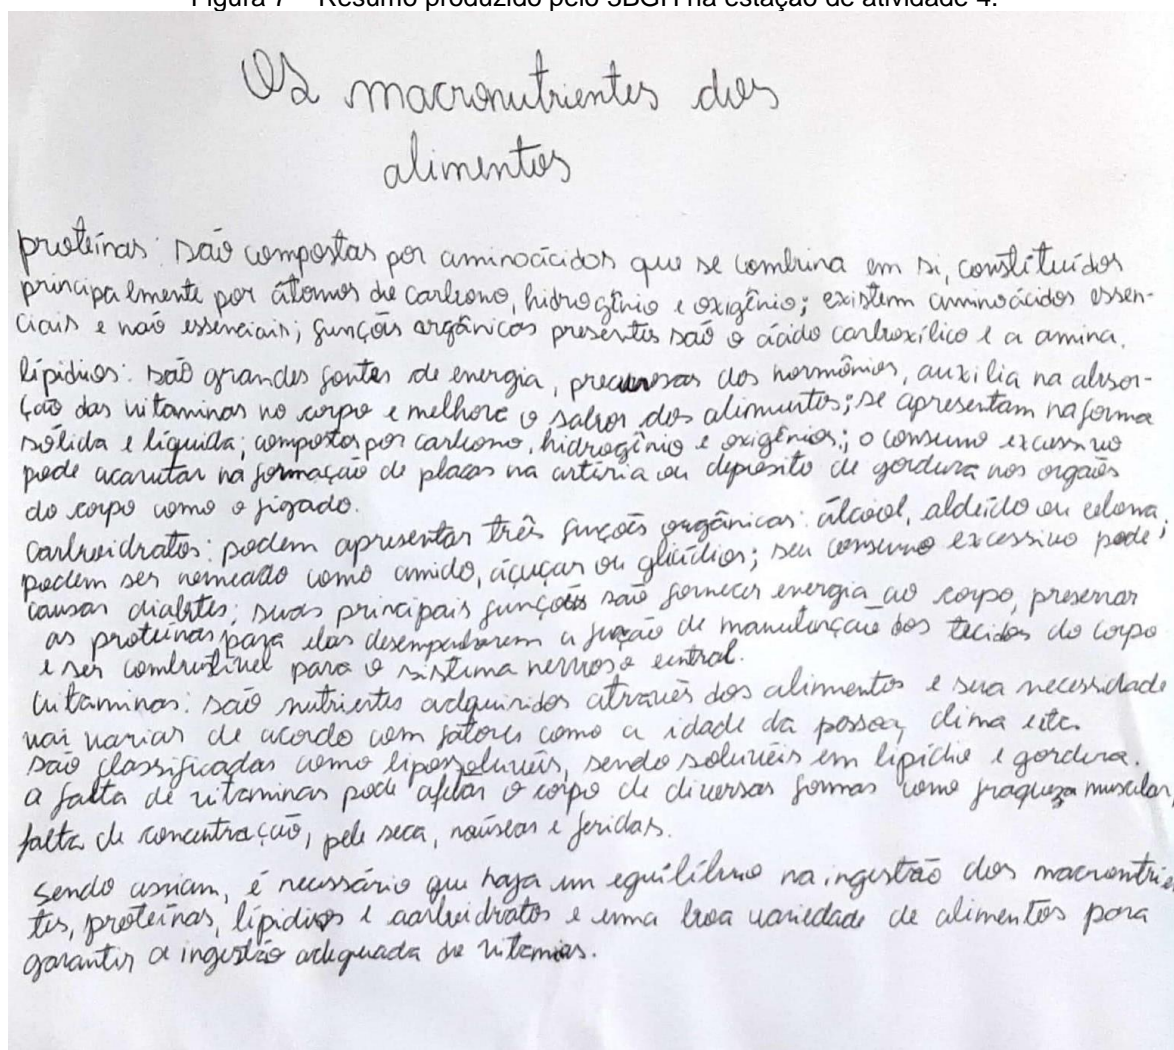 Figura 7 – Resumo produzido pelo 3BGH na estação de atividade 4.
Os macronutrientes dos
alimentos
proteínas: são compostas por aminoácidos que se combina em si, constituídos
principalmente por átomos de carbono, hidrogênio e oxigênio; existem aminoácidos essen-
ciais e não essenciais; funções orgânicas presentes são o ácido carboxílico e a amina.
lipídios: são grandes fontes de energia, precursoras dos hormônios, auxilia na absor-
ção das vitaminas no corpo e melhore o sabor dos alimentos; se apresentam na forma
sólida e líquida; compostos por carbono, hidrogênio e oxigênios; o consumo excessivo
pode acarretar na formação de placas na artéria ou depósito de gordura nos orgãos
do corpo como o fígado.
carboidratos: podem apresentar três funções orgânicas: álcool, aldeído ou cetona;
podem ser nomeado como amido, açúcar ou glicídios; seu consumo excessivo pode
causar diabetes; suas principais funções são fornecer energia ao corpo, preservar
as proteínas para elas desempenharem a função de manutenção dos tecidos do corpo
e ser combustível para o sistema nervoso central.
vitaminas: são nutrientes adquiridos através dos alimentos e sua necessidade
vai variar de acordo com fatores como a idade da pessoa, clima etc.
são classificadas como lipossoluvéis, sendo soluvéis em lipídio e gordura.
a falta de vitaminas pode afetar o corpo de diversas formas como fraqueza muscular,
falta de concentração, pele seca, naúseas e feridas.
sendo assiam, é necessário que haja um equilíbrio na ingestão dos macrontrien
tes, proteínas, lipídios e carboidratos e uma boa variedade de alimentos para
garantir a ingestão adequada de vitamias.